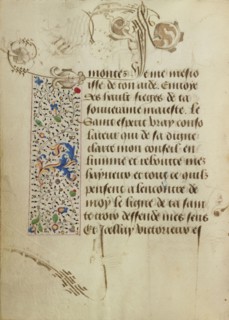 montes Je me mesio
iste de ton aide Enuoye
des haulx sieges de ta
souueraine maieste Le
Saint esperit vray conso
lateur qui de sa digne
clarte mon conseil en
lumine et reboute mes
hayneux et tous ceulx qui
pensent a lencontre de
moy le signe de ta sain
te croix deffende mes sens
Et Jcelluy victorieux es